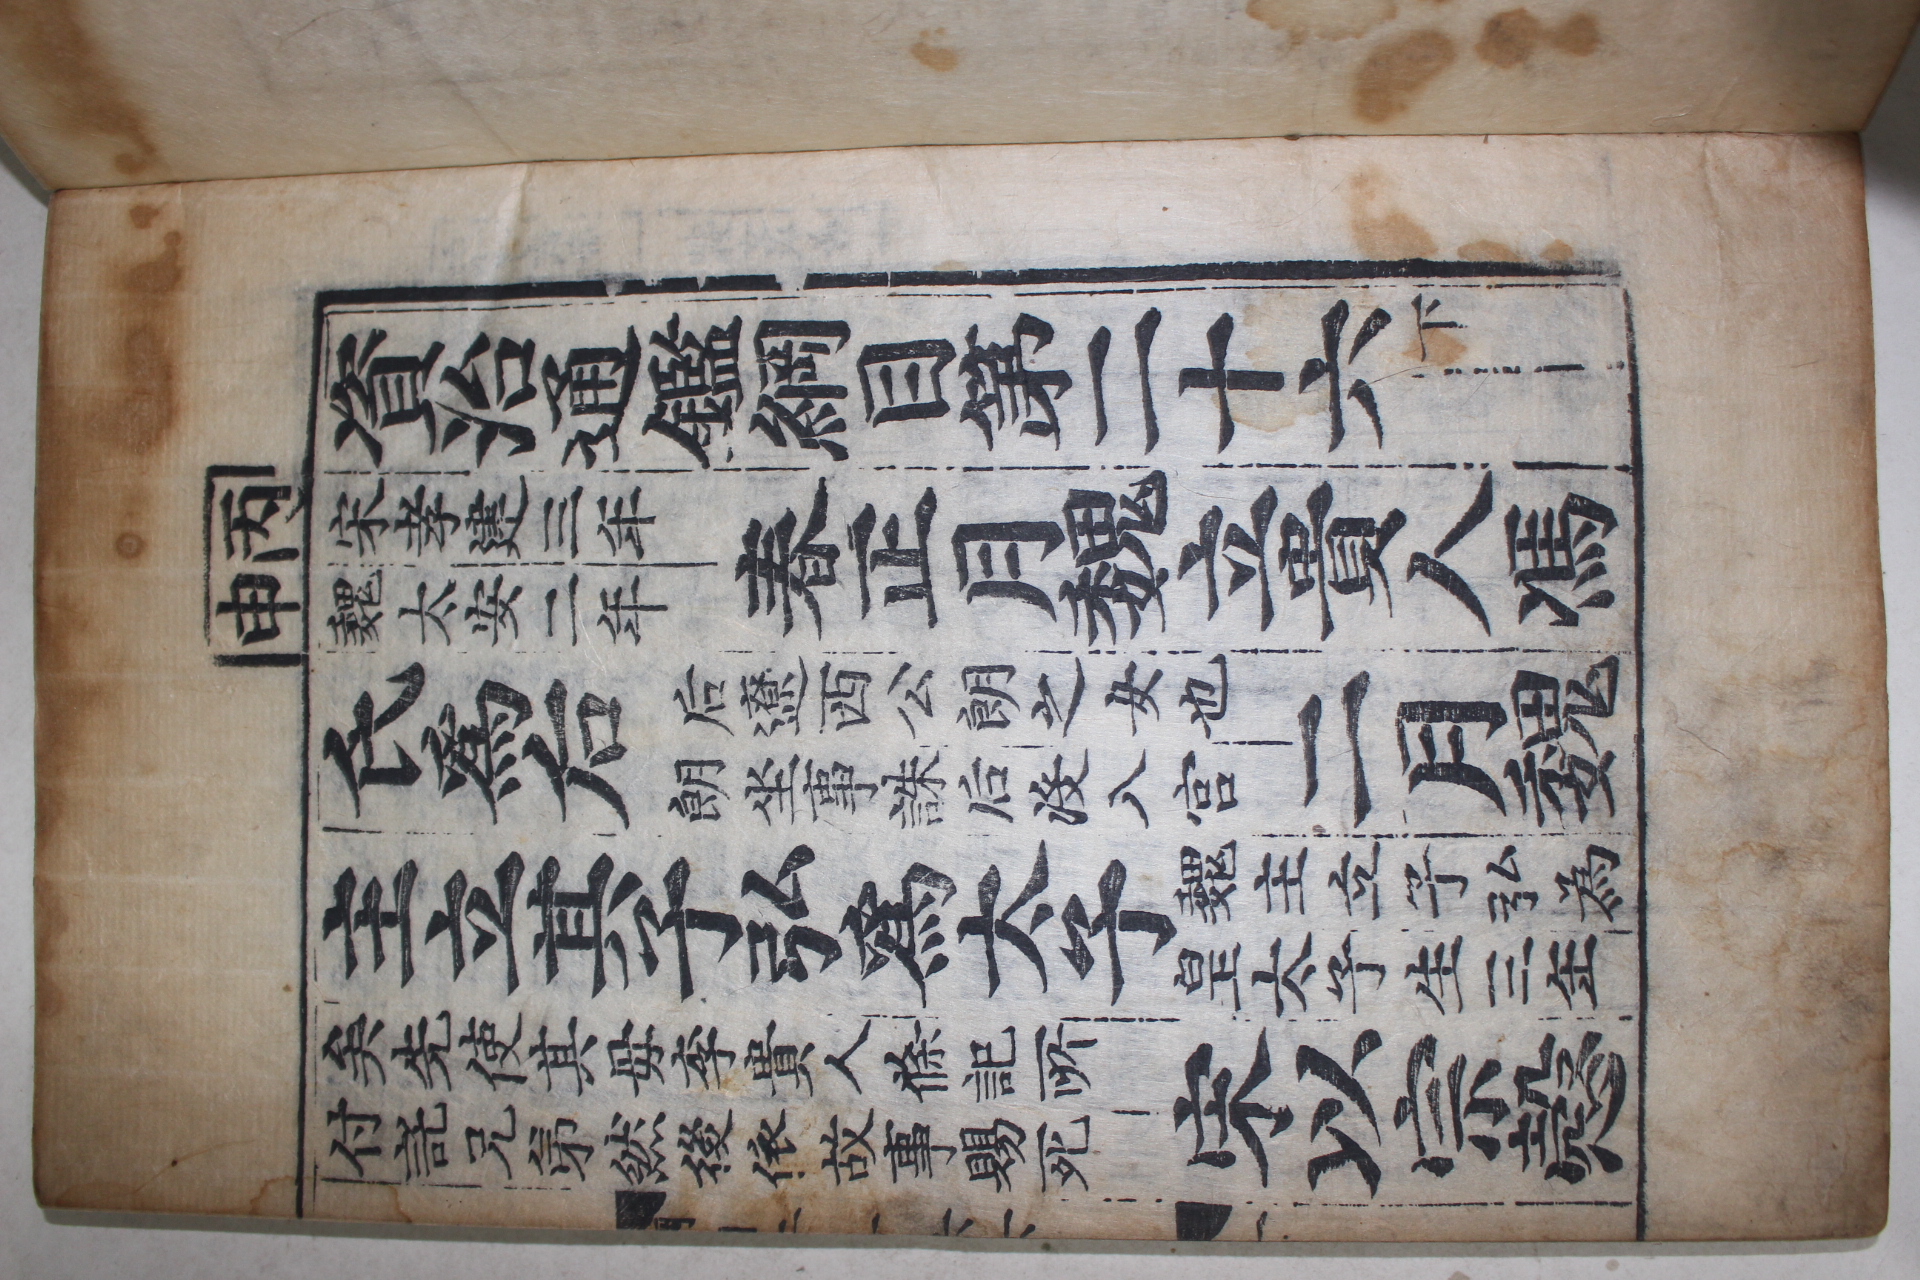 丙申
資治通鑑綱目第二十六下
宋孝建三年
魏太安二年
春正月魏立貴人馮
氏爲后
后遼西公朗之女也
朗坐事誅后没入宮
二月魏
主立其子弘爲太子
魏主立子弘為
皇太子生三年
矣先使其母李貴人條記所
付託兄弟然後依故事賜死
宋以宗愨